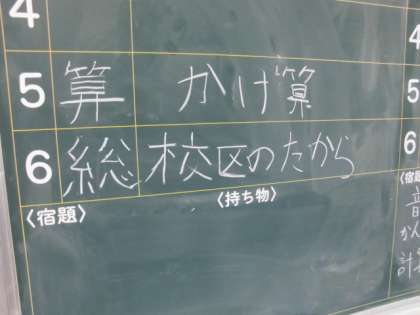 4
5 算 かけ算
6 総 校区のたから
〈宿題〉 〈持ち物〉
4
5
6
〈宿題
音
かん
計